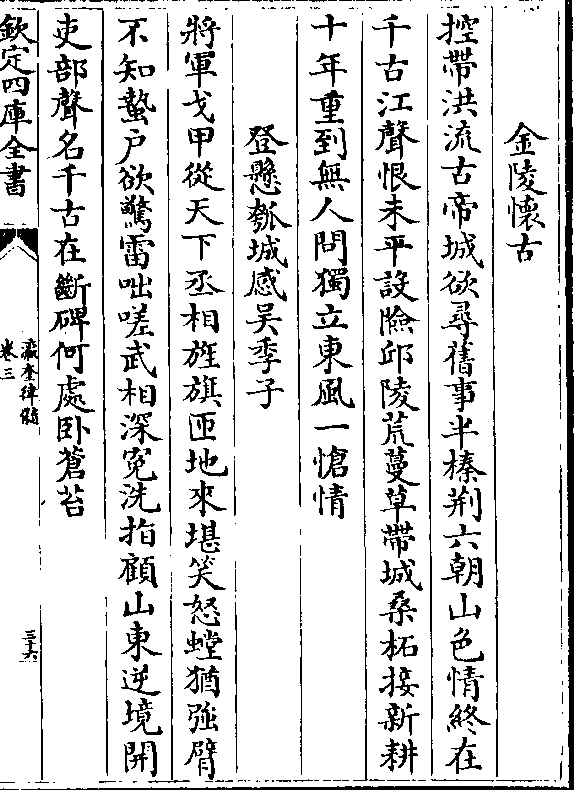 金陵懷古
控帶洪流古帝城欲尋舊事半榛荆六朝山色情終在
千古江聲恨未平設險邱陵荒蔓草帶城桑柘接新耕
十年重到無人問獨立東風一愴情
登懸瓠城感吴季子
將軍戈甲從天下丞相旌旗匝地來堪笑怒螳猶強臂
不知蟄户欲驚雷咄嗟武相深寃洗指顧山東逆境開
吏部聲名千古在斷碑何處卧蒼苔
欽定四庫全書
瀛奎律髓
卷三
三十六